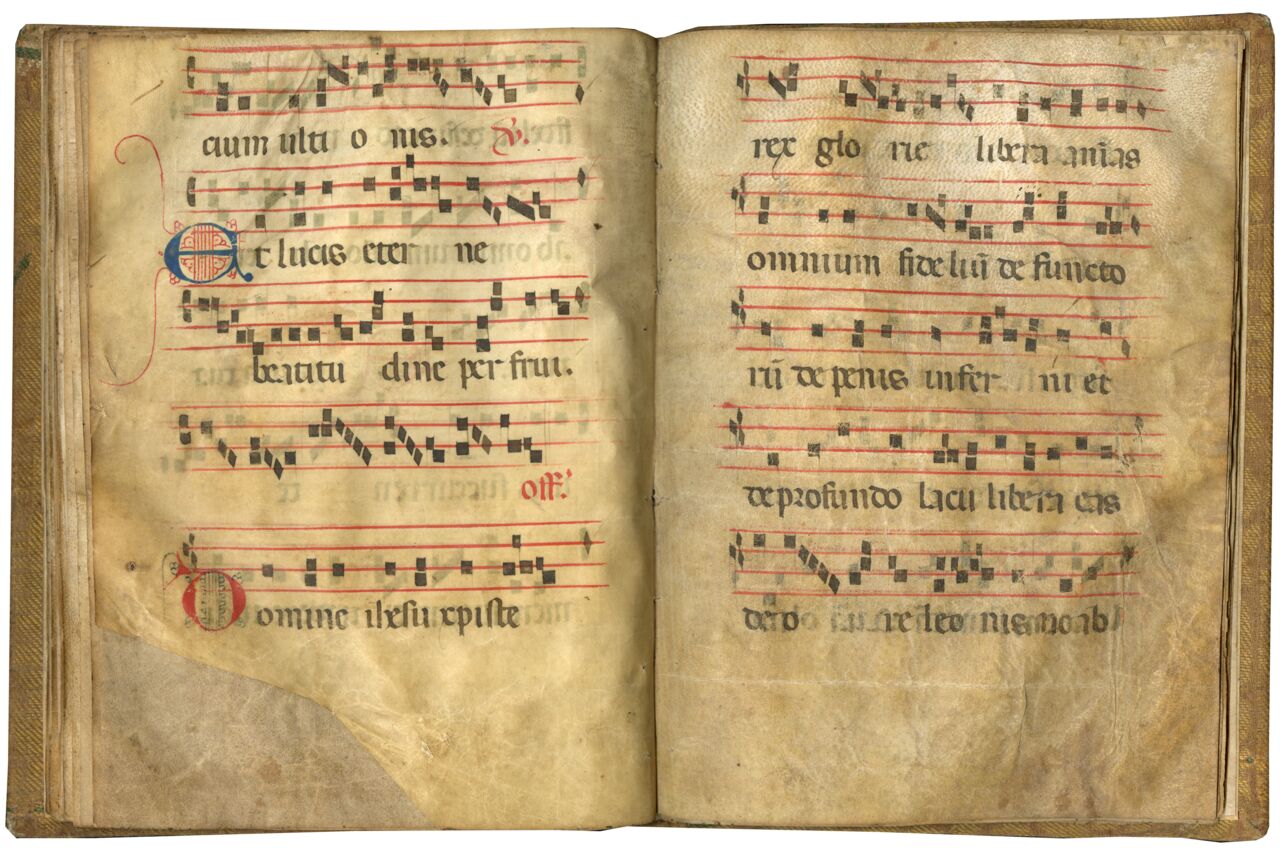 cium ulti o nis. V.
Et lucis eter ne
beatitu dine per frui.
off.
Domine ihesu xpiste
rex glo rie libera anīas
omnium fideliū de functo
rū de penis infer ni et
de profundo lacu libera eas
de o re leo nis ne ab